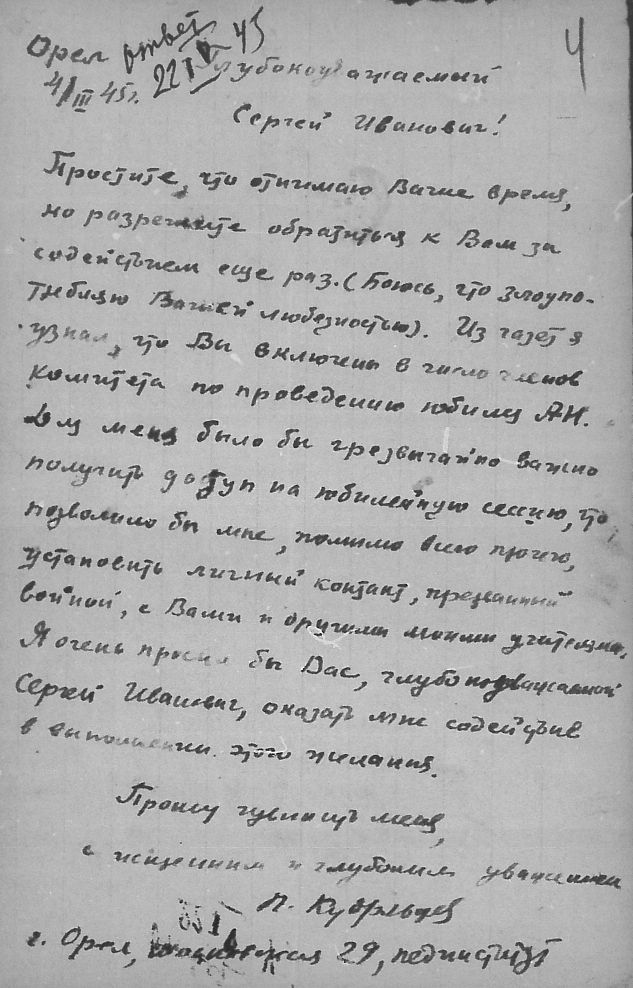 Орел ответ
4/III 45г. 22 IV 45
4
Глубокоуважаемый
Сергей Иванович!
Простите, что отнимаю Ваше время,
но разрешите обратиться к Вам за
содействием еще раз. (Боюсь, что злоупо-
требляю Вашей любезностью). Из газет я
узнал, что Вы включены в число членов
комитета по проведению юбилея АН.
Для меня было бы чрезвычайно важно
получить доступ на юбилейную сессию, что
позволило бы мне, помимо всего прочего,
установить личный контакт, прерванный
войной, с Вами и другими моими учителями.
Я очень просил бы Вас, глубокоуважаемый
Сергей Иванович, оказать мне содействие
в выполнении этого желания.
Прошу извинить меня,
с искренним и глубоким уважением
П. Кудрявцев
г. Орел, 29, пединститут